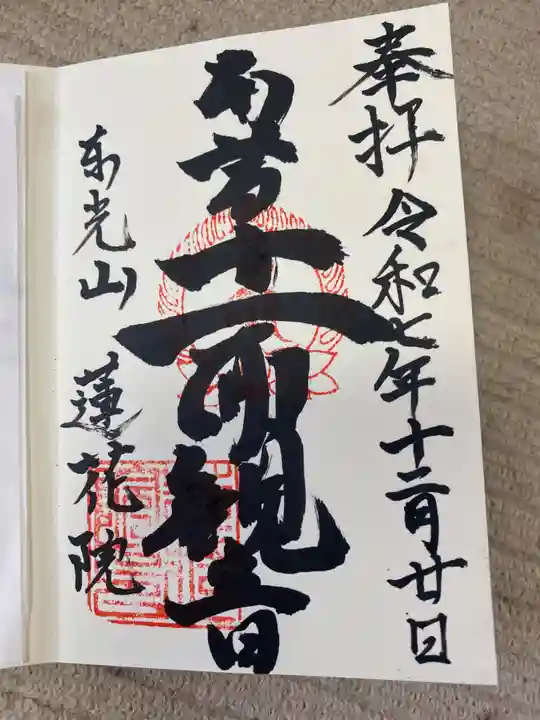 奉拝 令和七年十二月廿日
南無十一面観音
東光山 蓮花院